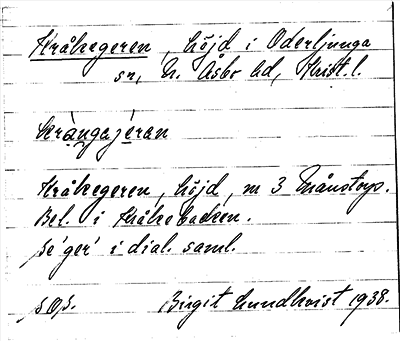 Kråkegeren, höjd i Oderljunga
sn, N. Åsbo hd, Krist. l.
Kråkegeren, höjd, m 3 Månstorp.
Bel. i Kråkebacken.
Se 'ger' i dial. saml.
SOS. Birgit Lundkvist 1938.